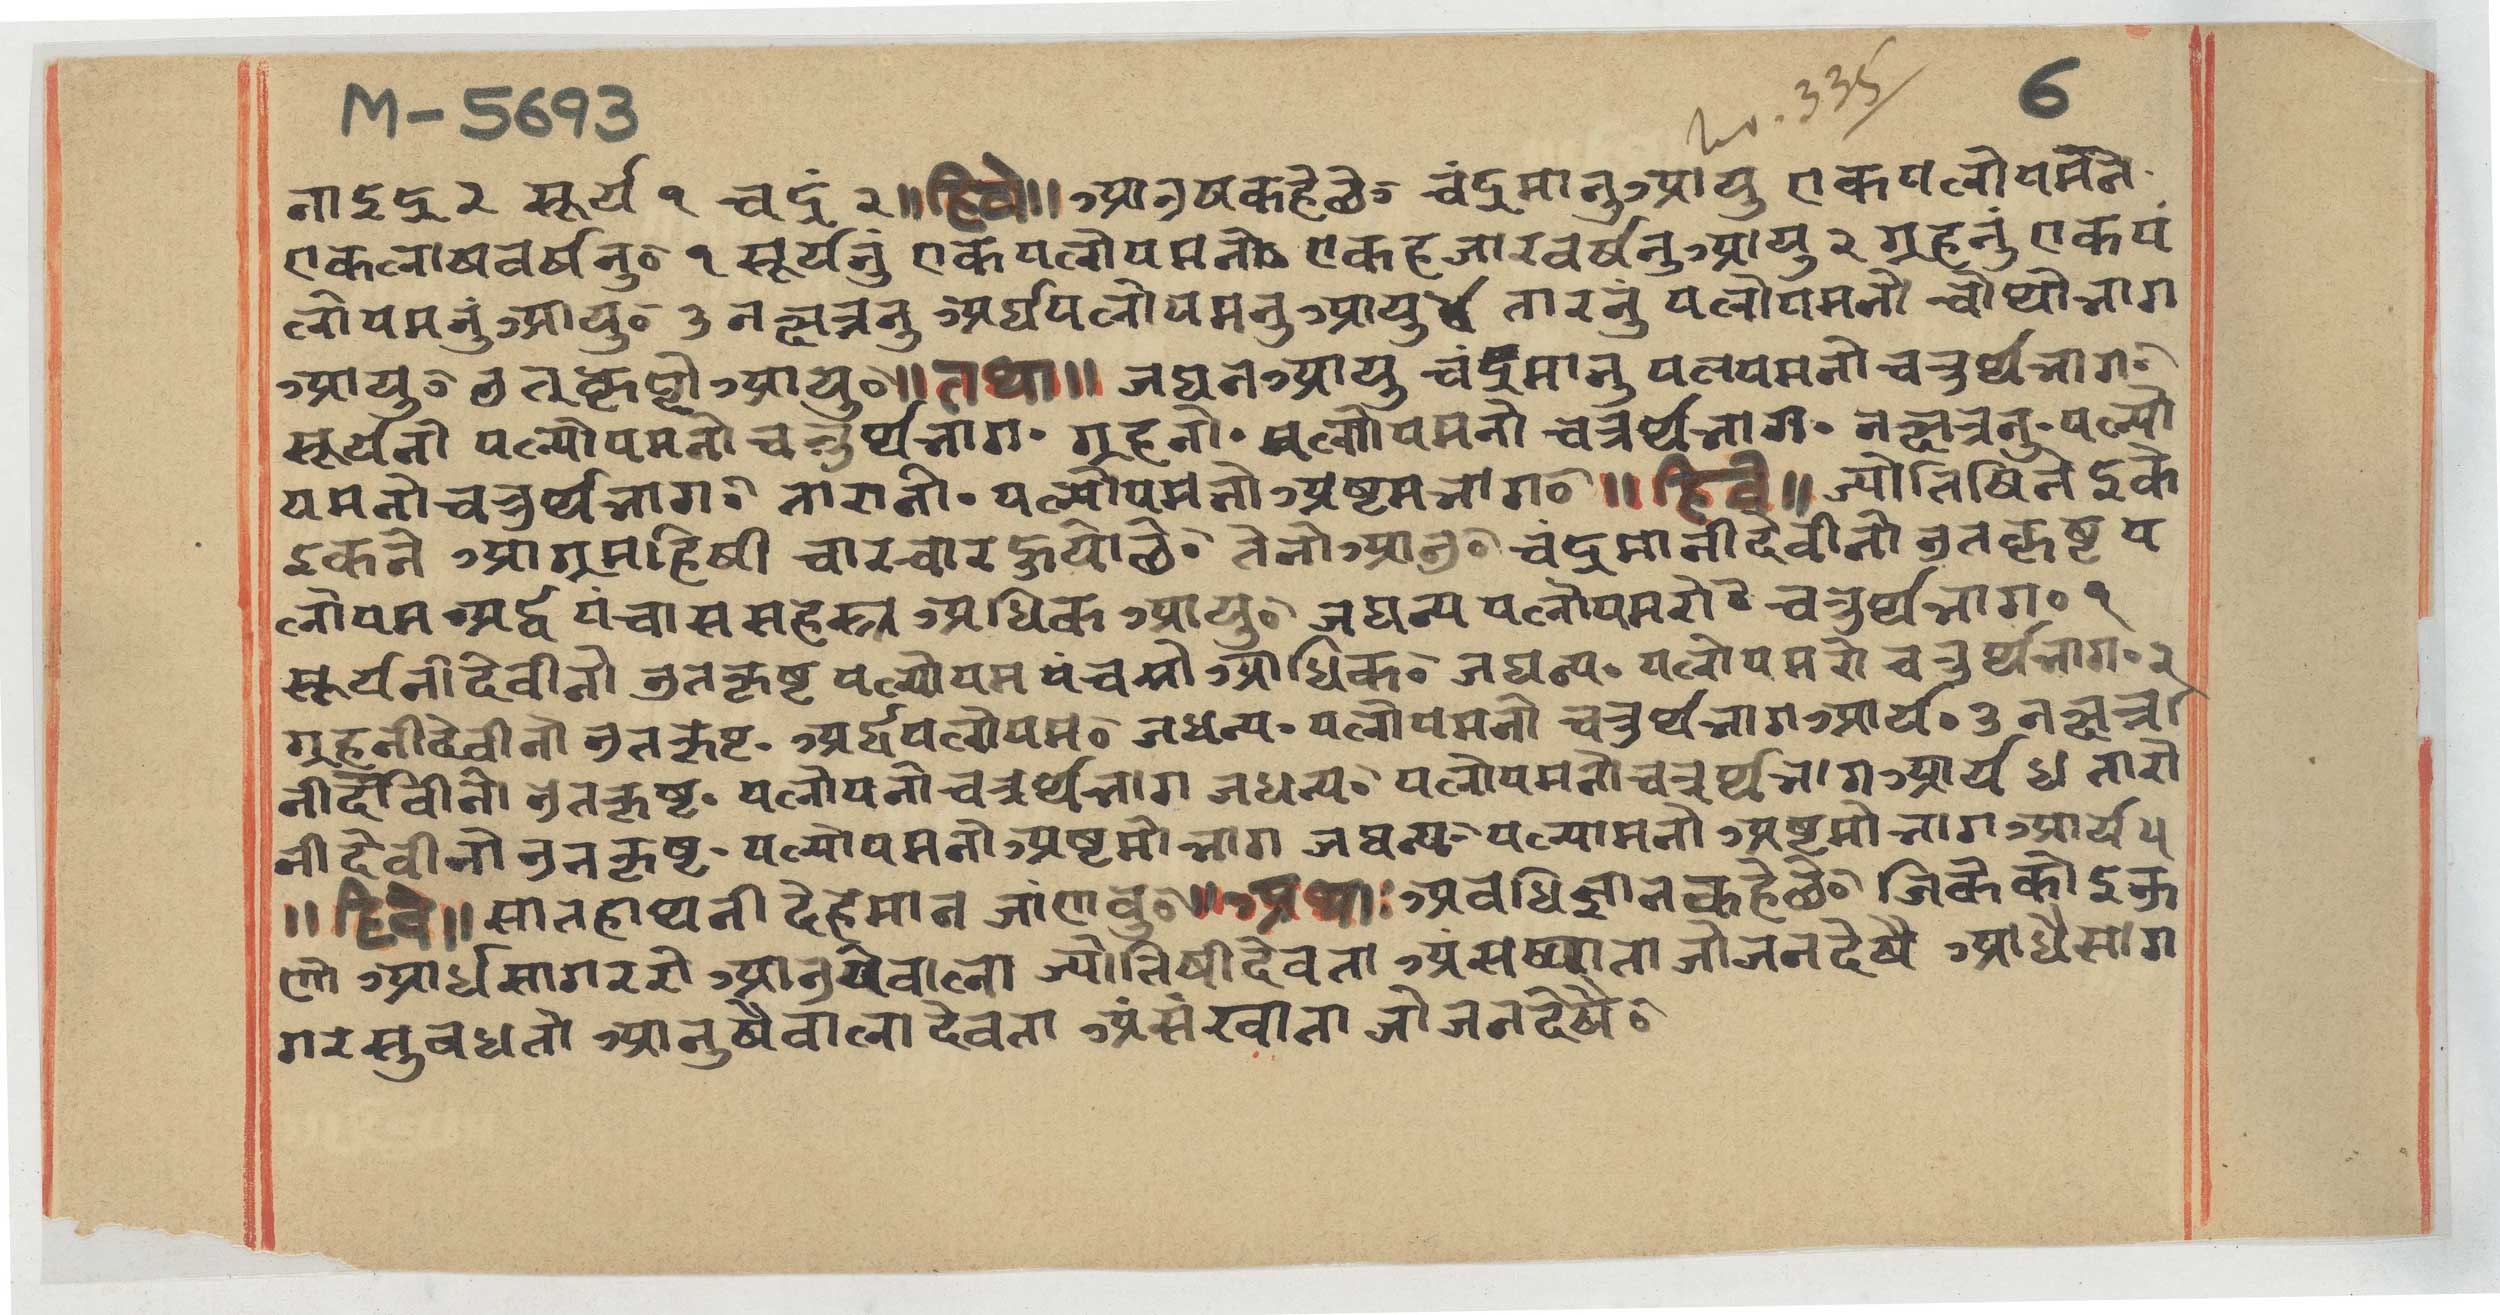 M-5693
No. 335
6
ना इद्र २ सूर्य १ चद्रं २ ॥ हिवे ॥ आउषकहेछे॰ चंद्रमानु आयु एकपलोपमने
एकलाषवर्षनु॰ १ सूर्यनुं एकपलोपमनो॰ एकहजारवर्षनु आयु २ ग्रहनुं एकप
लोपमनुं आयु॰ ३ नक्षत्रनु अर्धपलोपमनु आयु ४ तारनुं पलोपमनो चोथो भाग
आयु॰ उतकृष्टो आयु॰ ॥ तथा ॥ जघन आयु चंद्रमानु पलपमनो चतुर्थभाग॰
सूर्यनो पल्योपमनो चतुर्थभाग॰ ग्रहनो॰ पल्योपमनो चत्रर्थभाग॰ नक्षत्रनु॰ पल्यो
पमनो चतुर्थभाग॰ तारानो॰ पल्योपमनो अष्टमभाग॰ ॥ हिवे ॥ ज्योतिषिने इके
इकने आग्रमहिषी चारचार हुयोछे॰ तेनो आउ॰ चंद्रमानी देवीनो उतकृष्ट प
लोपम अर्द्ध पंचास सहस्र अधिक आयु॰ जघन्य पलोपमरो चतुर्थभाग॰ १
सूर्यनी देवीनो उतकृष्ट पल्योपम पंचसो अधिक॰ जघन्य॰ पलोपमरो चतुर्थभाग॰ २
ग्रहनी देवीनो उतकृष्ट॰ अर्धपलोपम॰ जघन्य॰ पलोपमनो चतुर्थभाग आर्य॰ ३ नक्षत्र
नी देविनो उतकृष्ट॰ पलोपनो चत्रर्थभाग जघन्य॰ पलोपमनो चत्रर्थभाग आर्य ४ तारो
नी देवीनो उतकृष्ट॰ पल्योपमनो अष्टमो भाग जघन्य॰ पल्यामनो अष्टमो भाग आर्य ५
॥ हिवे ॥ सातहाथनी देहमान जांणवु॰ ॥ अथाः अवधिज्ञान कहेछे॰ जिके कोइक
णो आर्ध सागररो आउषेवाला ज्योतिषी देवता असंष्याता जोजन देषै आधै साग
गर सुवधतो आउषेवाला देवता असंख्याता जोजन देषे॰